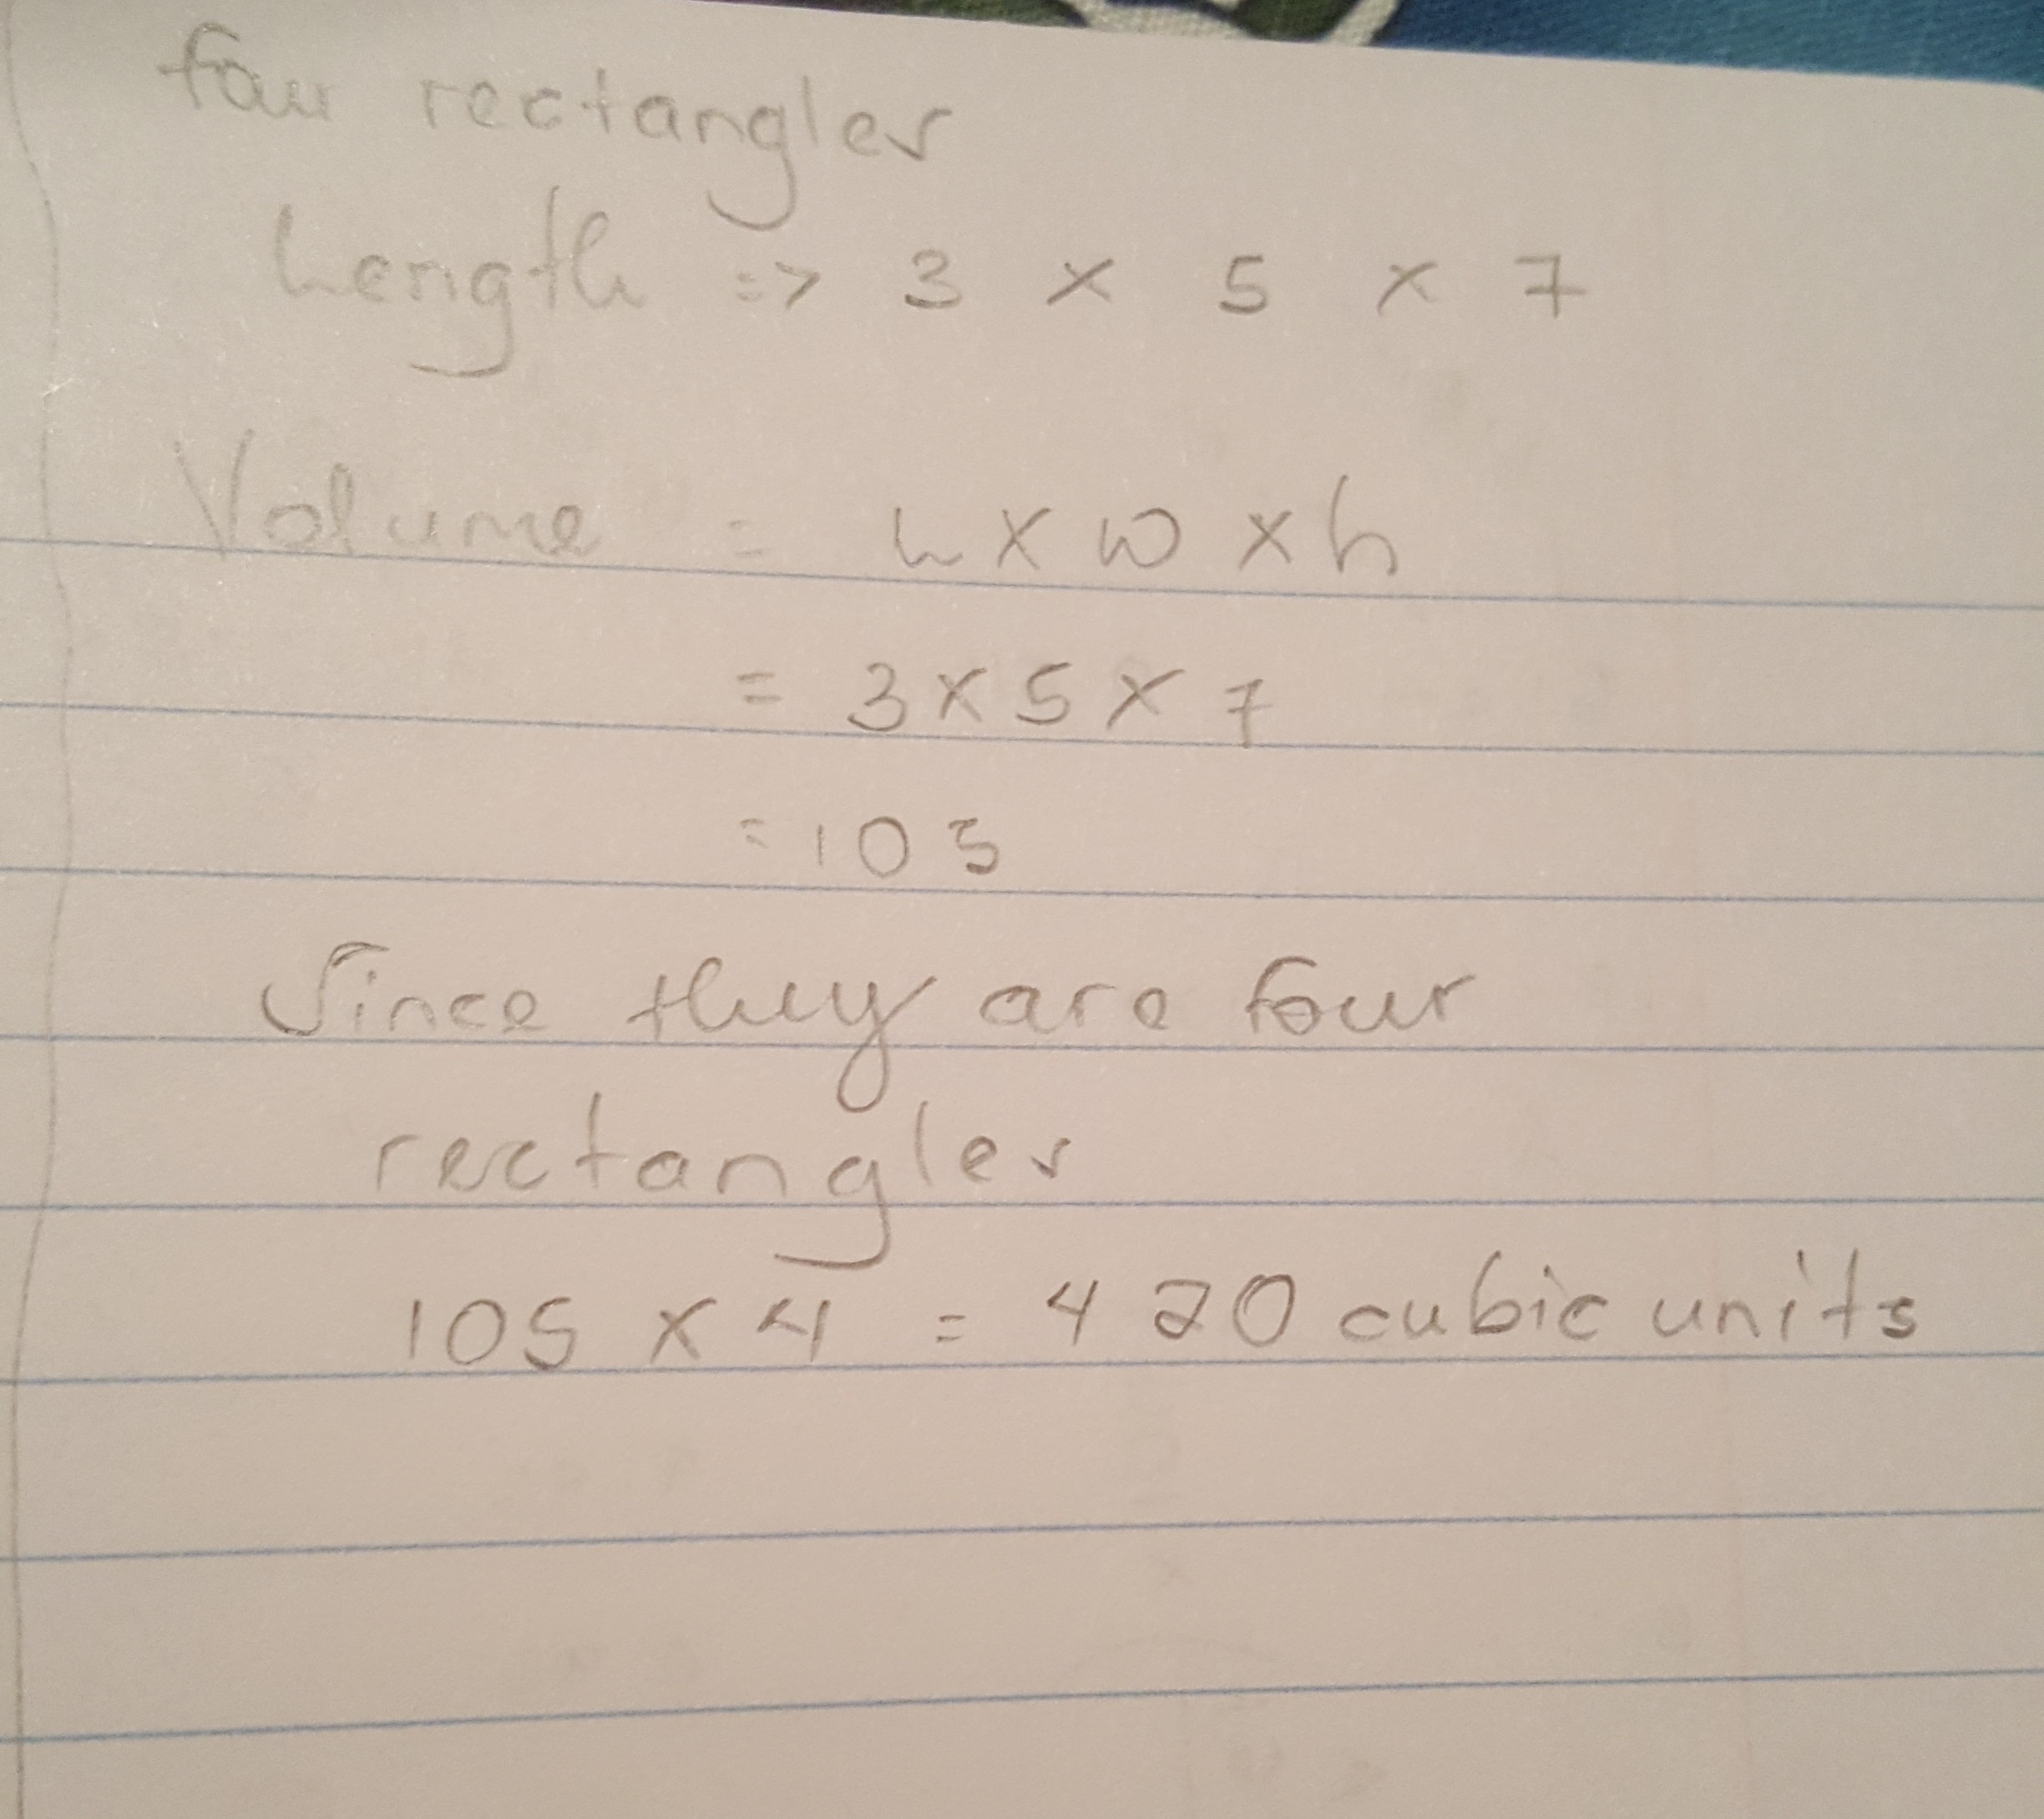 four rectangles
Length => 3 x 5 x 7
Volume = L x w x h
= 3 x 5 x 7
= 105
Since they are four
rectangles
105 x 4 = 420 cubic units